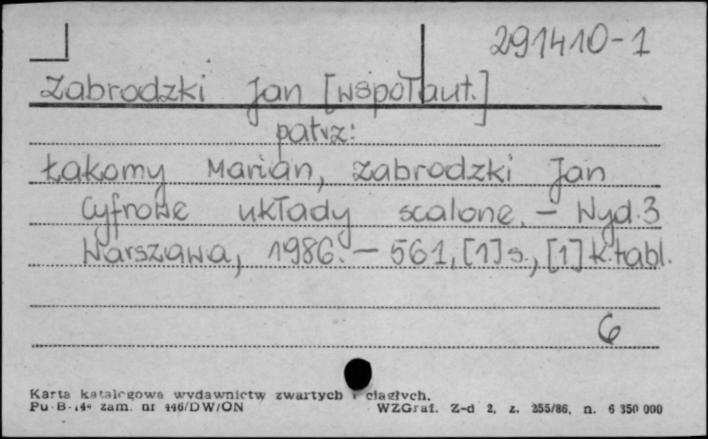 291410-1
Zabrodzki Jan [współaut.]
patrz:
Łakomy Marian, Zabrodzki Jan
Cyfrowe układy scalone. - Wyd. 3
Warszawa, 1986. - 561, [1] s., [1] k. tabl.
6
Karta katalogowa wydawnictw zwartych i ciągłych.
Pu-B-144 zam. nr 446/DW/ON WZGraf. Z-d 2, z. 355/86, n. 6 350 000